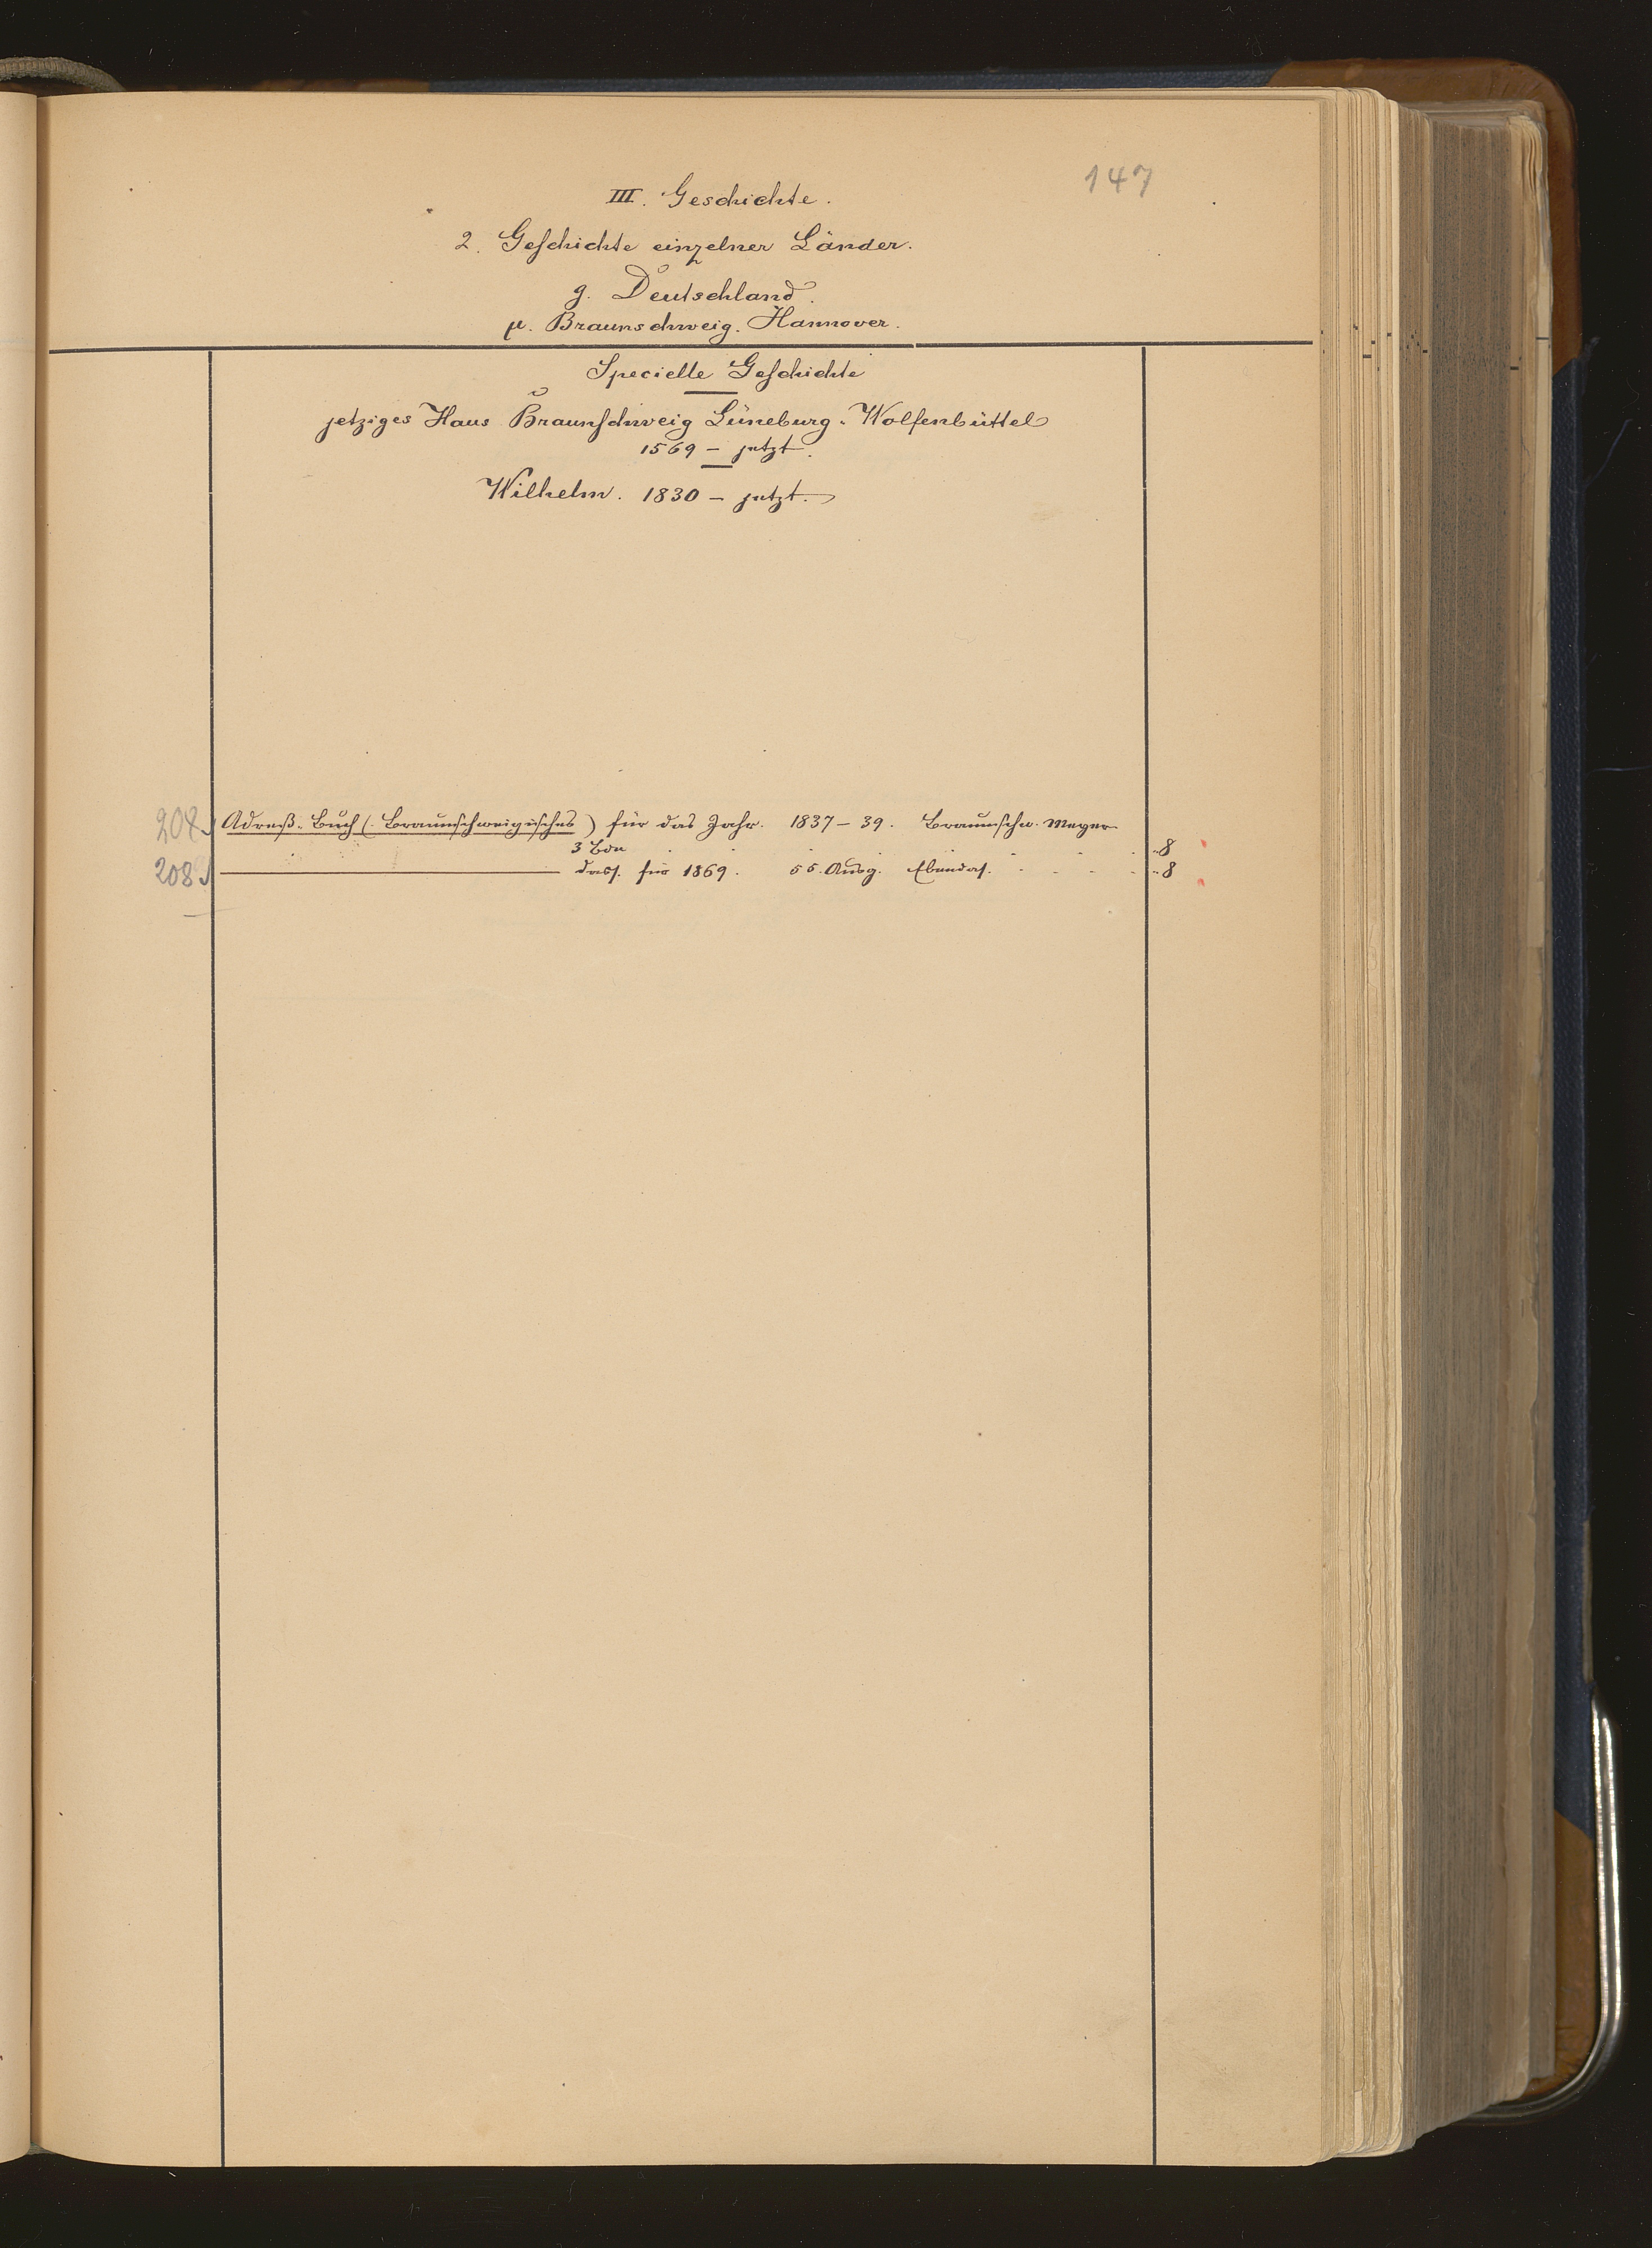 147
III. Geschichte.
2. Geschichte einzelner Länder.
g. Deutschland.
µ. Braunschweig. Hannover.
Specielle Geschichte
jetziges Haus Braunschweig Lüneburg-Wolfenbüttel
1569 – jetzt.
Wilhelm. 1830 – jetzt.
Adreß-Buch (Braunschweigisches) für das Jahr. 1837–39. Braunschw. Meyer
3 Bde . . . . . . . . 8
208 dass. für 1869. 55. Ausg. Ebendas. . . . . 8